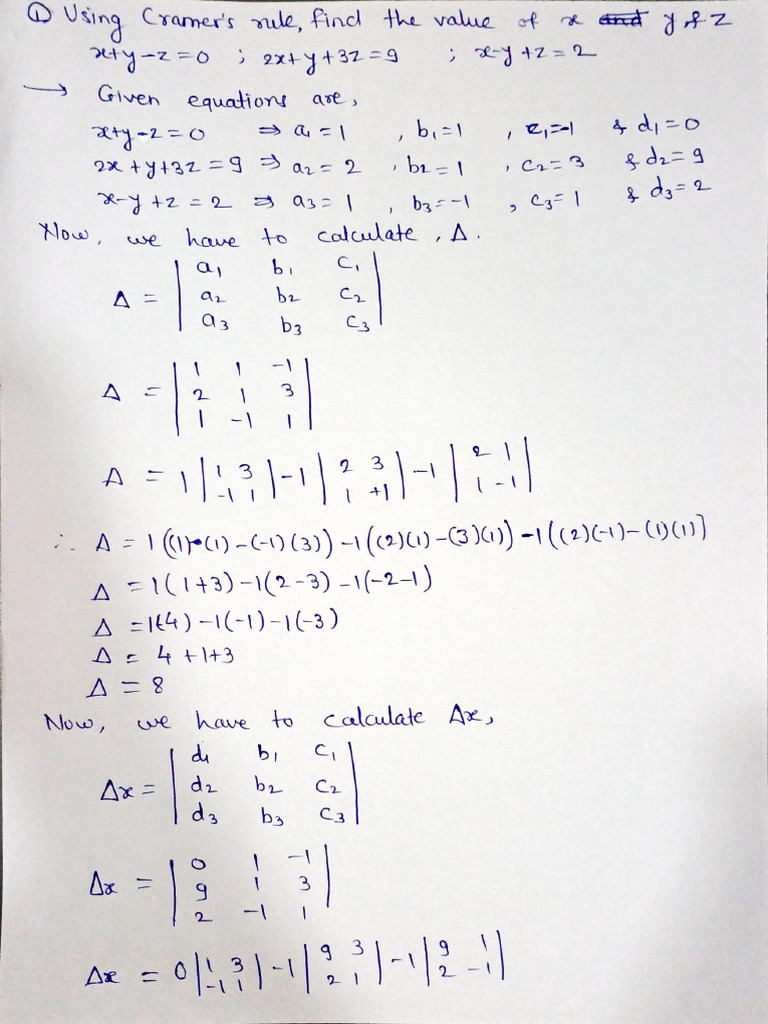 ① Using Cramer's rule, find the value of x and y & z
x+y-z=0 ; 2x+y+3z=9 ; x-y+z=2
→ Given equations are,
x+y-z=0 ⇒ a₁=1 , b₁=1 , c₁=-1 & d₁=0
2x+y+3z=9 ⇒ a₂=2 , b₂=1 , c₂=3 & d₂=9
x-y+z=2 ⇒ a₃=1 , b₃=-1 , c₃=1 & d₃=2
Now, we have to calculate, Δ.
Δ = | a₁ b₁ c₁ |
| a₂ b₂ c₂ |
| a₃ b₃ c₃ |
Δ = | 1 1 -1 |
| 2 1 3 |
| 1 -1 1 |
Δ = 1 | 1 3 | -1 | 2 3 | -1 | 2 1 |
| -1 1 | | 1 +1 | | 1 -1 |
∴ Δ = 1((1)•(1)-(-1)(3)) -1((2)(1)-(3)(1)) -1((2)(-1)-(1)(1)]
Δ = 1(1+3)-1(2-3)-1(-2-1)
Δ = 1(4)-1(-1)-1(-3)
Δ = 4+1+3
Δ = 8
Now, we have to calculate Δx,
Δx = | d₁ b₁ c₁ |
| d₂ b₂ c₂ |
| d₃ b₃ c₃ |
Δx = | 0 1 -1 |
| 9 1 3 |
| 2 -1 1 |
Δx = 0 | 1 3 | -1 | 9 3 | -1 | 9 1 |
| -1 1 | | 2 1 | | 2 -1 |